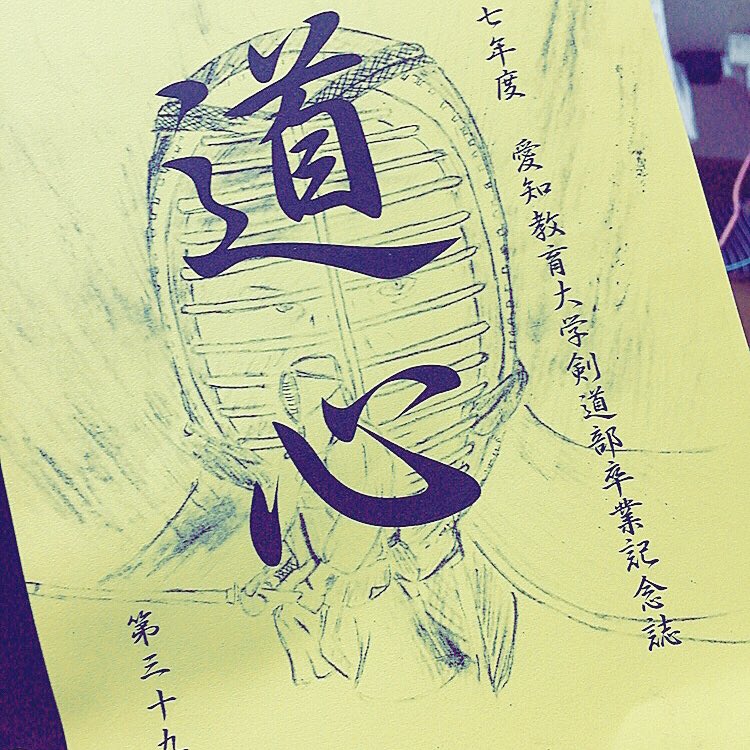 七年度 愛知教育大学剣道部卒業記念誌
道心
第三十九